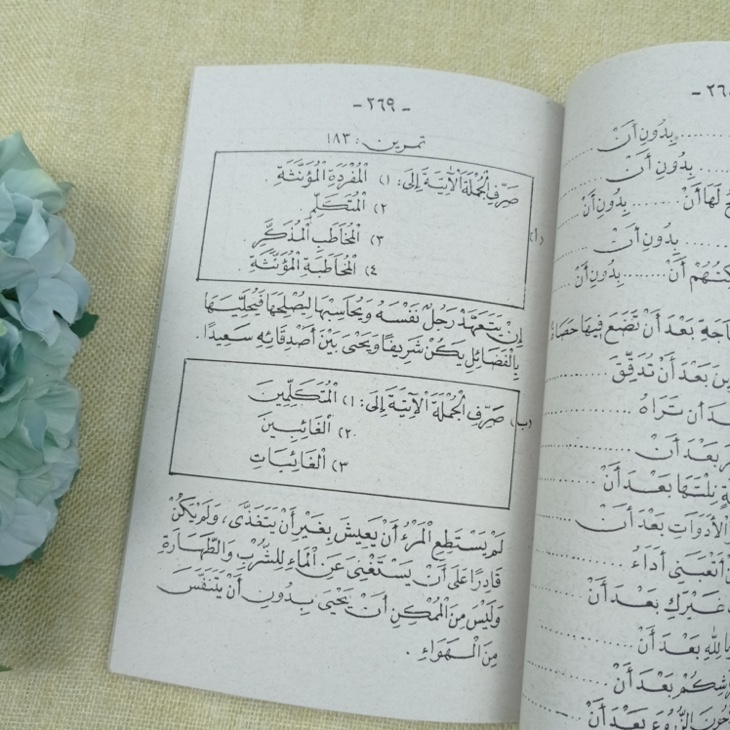 - ٢٦٩ -
تمرين : ١٨٣
(ا) صَرِّفِ الْجُمْلَةَ الْآتِيَةَ إِلَى : ١) الْمُفْرَدَةِ الْمُؤَنَّثَةِ
٢) الْمُتَكَلِّمِ
٣) الْمُخَاطَبِ الْمُذَكَّرِ
٤) الْمُخَاطَبَةِ الْمُؤَنَّثَةِ
إِنْ يَتَعَهَّدْ رَجُلٌ نَفْسَهُ وَيُحَاسِبْهَا لِيُصْلِحَهَا فَيُحَلِّيَهَا
بِالْفَضَائِلِ يَكُنْ شَرِيفًا وَيَحْيَى بَيْنَ أَصْدِقَائِهِ سَعِيدًا .
(ب) صَرِّفِ الْجُمْلَةَ الْآتِيَةَ إِلَى : ١) الْمُتَكَلِّمِينَ
٢) الْغَائِبِينَ
٣) الْغَائِبَاتِ
لَمْ يَسْتَطِعِ الْمَرْءُ أَنْ يَعِيشَ بِغَيْرِ أَنْ يَتَغَذَّى ، وَلَمْ يَكُنْ
قَادِرًا عَلَى أَنْ يَسْتَغْنِيَ عَنِ الْمَاءِ لِلشُّرْبِ وَالطَّهَارَةِ
وَلَيْسَ مِنَ الْمُمْكِنِ أَنْ يَحْيَى بِدُونِ أَنْ يَتَنَفَّسَ
مِنَ الْهَوَاءِ .
بِدُونِ أَنْ
بِدُونِ أَنْ
لَهَا أَنْ ........ بِدُونِ أَنْ
بِدُونِ أَنْ
أَنْ ........ بِدُونِ أَنْ
بَعْدَ أَنْ تَضَعَ فِيهَا
بَعْدَ أَنْ تُدَقِّقَ
أَنْ تَرَاهُ
بَعْدَ أَنْ
نِلْتَهَا بَعْدَ أَنْ
الْأَدَوَاتِ بَعْدَ أَنْ
أَتْعَبَنِي أَدَاءُ
غَيْرِكِ بَعْدَ أَنْ
بَعْدَ أَنْ
بَعْدَ أَنْ
الزُّرُوعَ بَعْدَ أَنْ